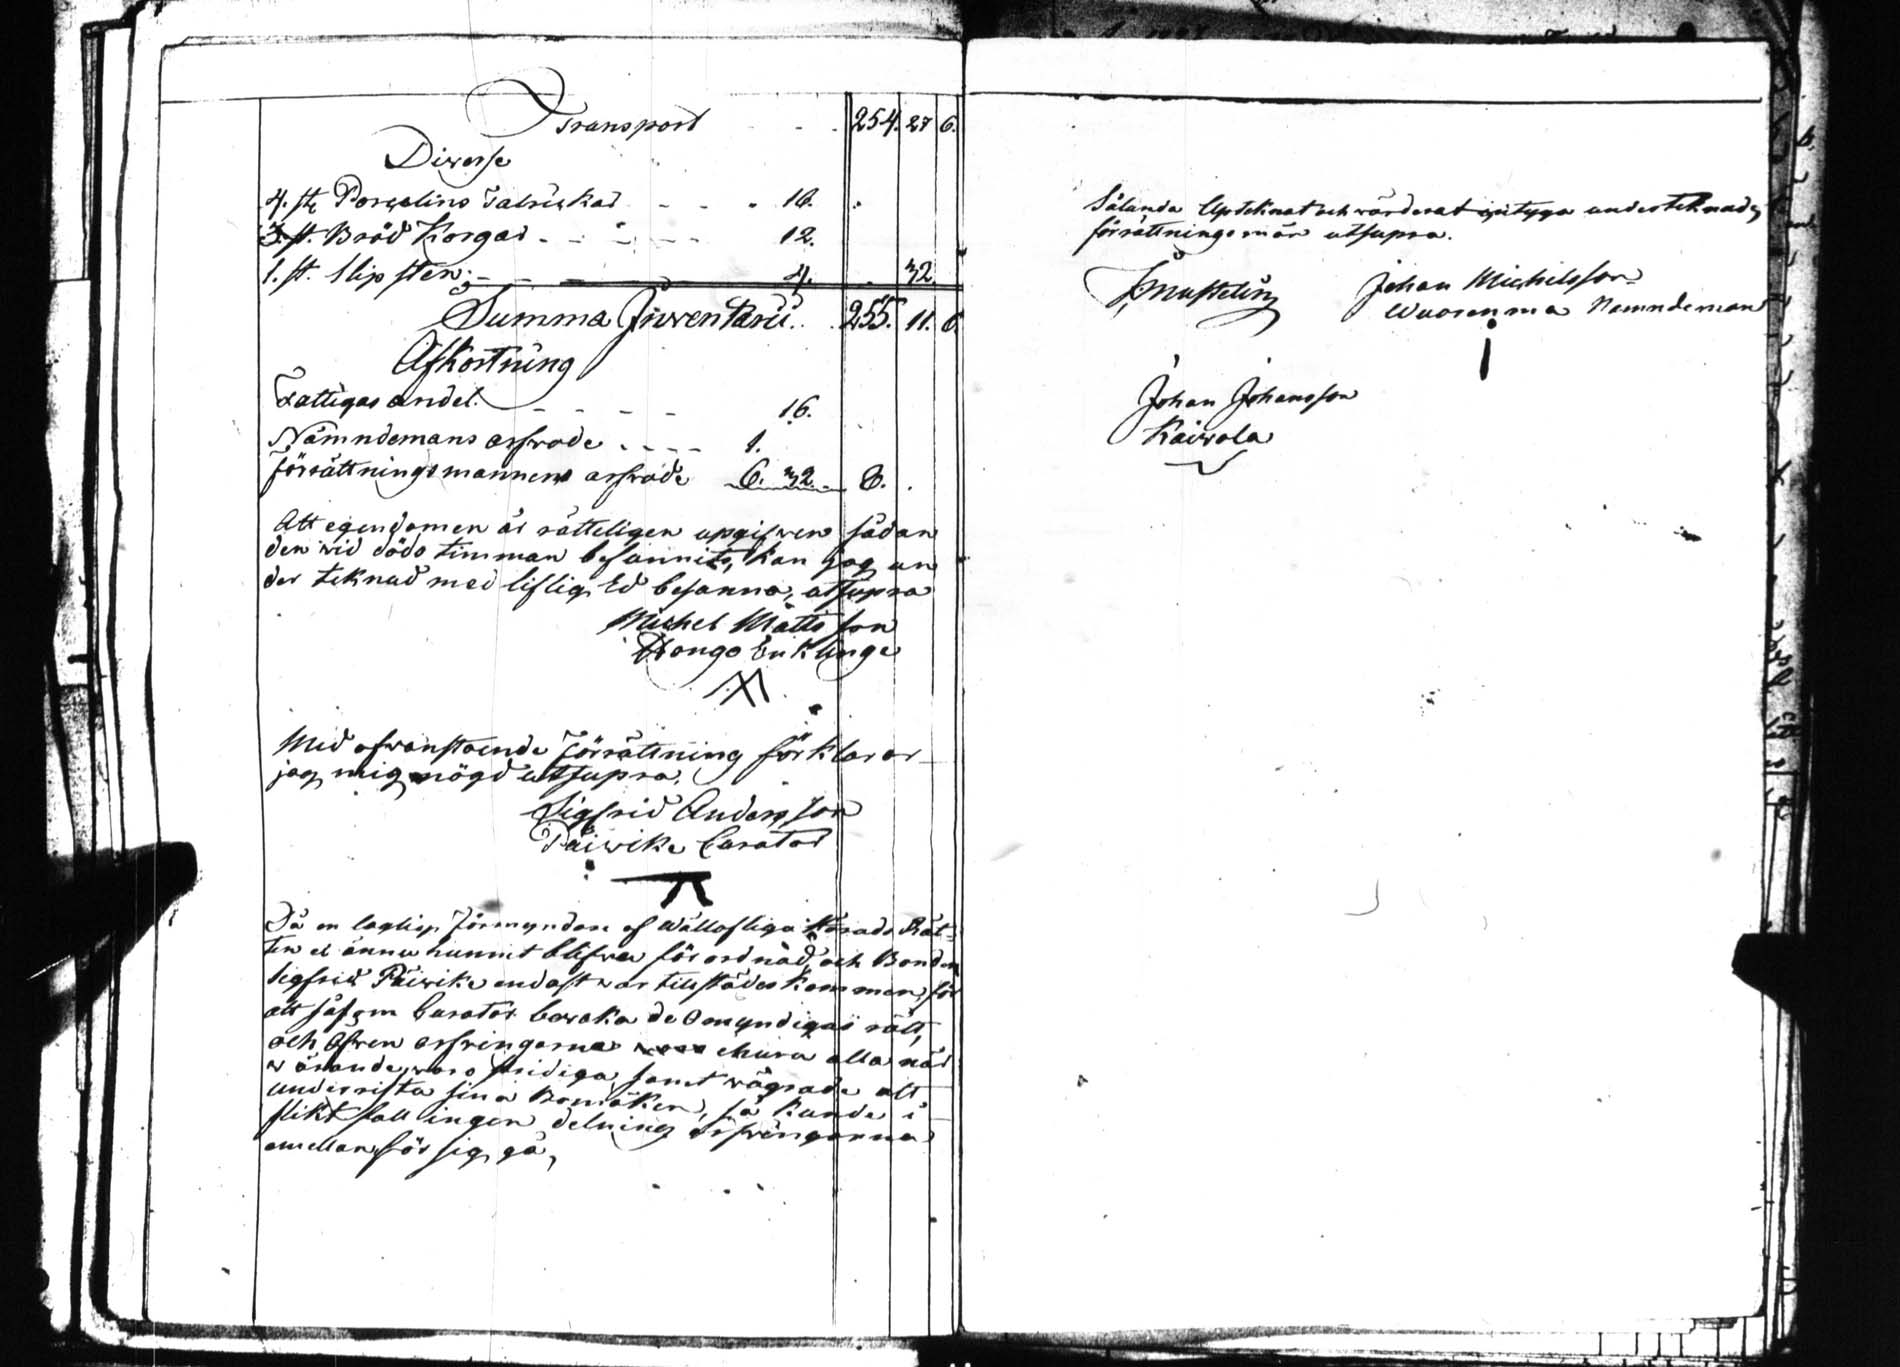 Transport - - - 254. 27 6.
Diverse
4. st. Porcelins Talrickar - - - 16.
3. st. Bröd Korgar - - - - 12.
1. st. Slipsten - - - 4. . 32.
Summa Inventarii. . 255. 11. 6
Afkortning
Fattigas andel. - - - - 16.
Nämndemans arfvode - - - - 1.
förrättningsmannens arfvode 6. 32. 8. .
Att egendomen är rätteligen upgifven sådan
den vid döds timman befunnits, kan jag un
der teknad med liflig Ed besanna, utsupra
Michel Matts son
Hongo Enklinge
Med ofvanstående Förrättning förklarar
jag mig nögd utsupra.
Sigfrid Anders son
Päivike Curator
Då en laglig Förmyndare af Wällofliga Härads Rät-
ten ei ännu hunnit blifva förordnad, och Bonden
Sigfrid Päivike endast var tillstädes kommen, för
att såsom Curator bevaka de Omyndigas rätt,
och äfven arfvingarna ehuru alla när
varande, voro stridiga samt vägrade att
underrista sina Bomärken, så kunde i
slikt fall ingen delning arfvingarna
emellan för sig gå,
Sålunda Upteknat och värderat intyga underteknade
förrättningsmän utsupra.
Johan Michelsson
Wuorenma Nämndeman
Johan Johansson
Kaivola